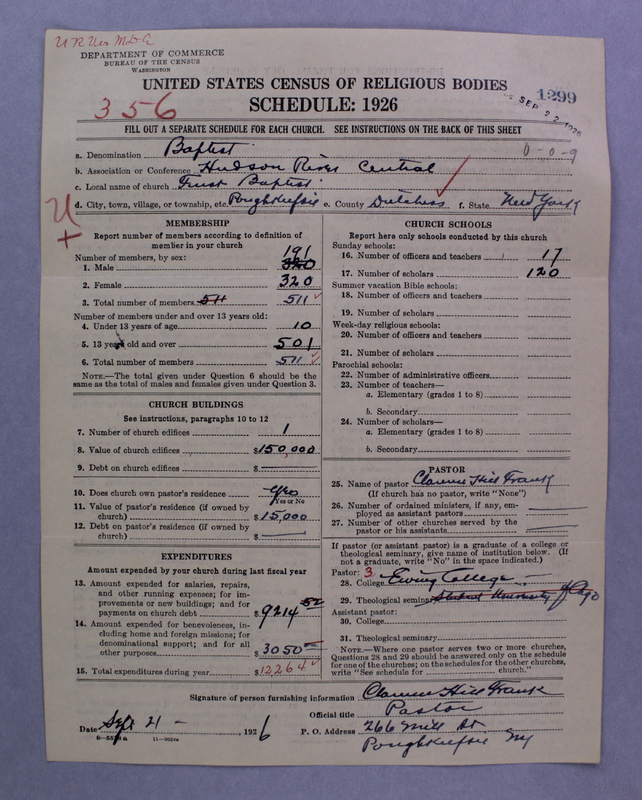 DEPARTMENT OF COMMERCE
BUREAU OF THE CENSUS
WASHINGTON
UNITED STATES CENSUS OF RELIGIOUS BODIES
1299
356
SCHEDULE: 1926
SEP 22 1926
FILL OUT A SEPARATE SCHEDULE FOR EACH CHURCH. SEE INSTRUCTIONS ON THE BACK OF THIS SHEET
a. Denomination Baptist 0-0-9
b. Association or Conference Hudson River Central
c. Local name of church First Baptist
d. City, town, village, or township, etc. Poughkeepsie e. County Dutchess f. State New York
MEMBERSHIP
Report number of members according to definition of
member in your church
Number of members, by sex:
191
1. Male 320
2. Female 320
3. Total number of members 511 511
Number of members under and over 13 years old:
4. Under 13 years of age 10
5. 13 years old and over 501
6. Total number of members 511
NOTE.—The total given under Question 6 should be the
same as the total of males and females given under Question 3.
CHURCH BUILDINGS
See instructions, paragraphs 10 to 12
7. Number of church edifices 1
8. Value of church edifices $150,000
9. Debt on church edifices $
10. Does church own pastor's residence Yes
Yes or No
11. Value of pastor's residence (if owned by
church) $15,000
12. Debt on pastor's residence (if owned by
church) $
EXPENDITURES
Amount expended by your church during last fiscal year
13. Amount expended for salaries, repairs,
and other running expenses; for im-
provements or new buildings; and for
payments on church debt $9214 52
14. Amount expended for benevolences, in-
cluding home and foreign missions; for
denominational support; and for all
other purposes $3050
15. Total expenditures during year $12,264
CHURCH SCHOOLS
Report here only schools conducted by this church
Sunday schools:
16. Number of officers and teachers 17
17. Number of scholars 120
Summer vacation Bible schools:
18. Number of officers and teachers
19. Number of scholars
Week-day religious schools:
20. Number of officers and teachers
21. Number of scholars
Parochial schools:
22. Number of administrative officers
23. Number of teachers—
a. Elementary (grades 1 to 8)
b. Secondary
24. Number of scholars—
a. Elementary (grades 1 to 8)
b. Secondary
PASTOR
25. Name of pastor Clarence Hill Frank
(If church has no pastor, write "None")
26. Number of ordained ministers, if any, em-
ployed as assistant pastors
27. Number of other churches served by the
pastor or his assistants
If pastor (or assistant pastor) is a graduate of a college or
theological seminary, give name of institution below. (If
not a graduate, write "No" in the space indicated.)
Pastor: 3
28. College Ewing College
29. Theological seminary University of Cago
Assistant pastor:
30. College
31. Theological seminary
NOTE.—Where one pastor serves two or more churches,
Questions 28 and 29 should be answered only on the schedule
for one of the churches; on the schedules for the other churches,
write "See schedule for church."
Signature of person furnishing information Clarence Hill Frank
Official title Pastor
Date Sept 21 - , 1926 P. O. Address 266 Mill St
Poughkeepsie NY
11—9024a